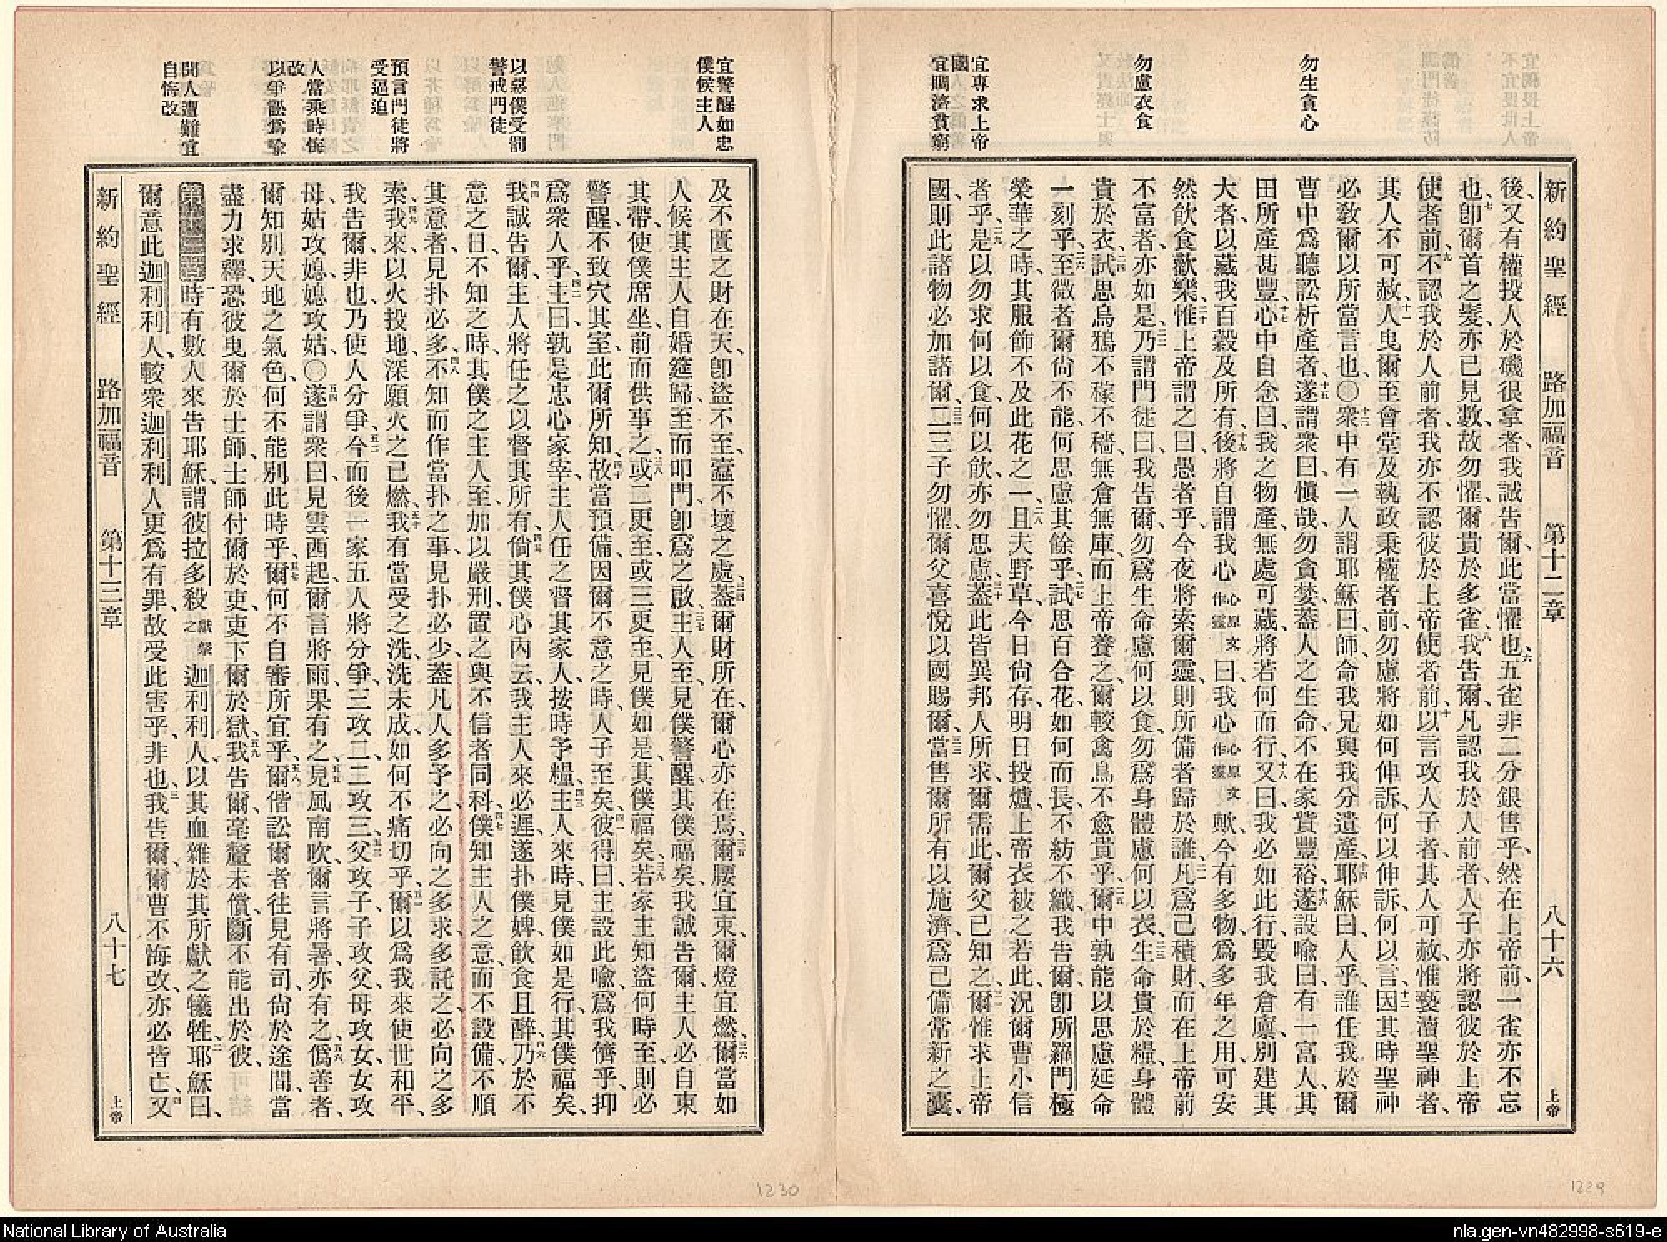 宜專求上帝
國
宜賙濟貧窮
勿慮衣食
勿生貪心
新約聖經 路加福音 第十二章 八十六 上帝
後、又有權投人於磯很拿者、我誠告爾、此當懼也、六五雀非二分銀售乎、然在上帝前、一雀亦不忘
也、七卽爾首之髮、亦已見數、故勿懼、爾貴於多雀、八我告爾、凡認我於人前者、人子亦將認彼於上帝
使者前、九不認我於人前者、我亦不認彼於上帝使者前、十以言攻人子者、其人可赦、惟褻瀆聖神者、
其人不可赦、十一人曳爾至會堂、及執政秉權者前、勿慮將如何伸訴、何以伸訴、何以言、十二因其時聖神
必敎爾以所當言也、〇十三衆中有一人謂耶穌曰、師、命我兄與我分遺產、十四耶穌曰、人乎、誰任我於爾
曹中爲聽訟析產者、十五遂謂衆曰、愼哉、勿貪婪、蓋人之生命、不在家貲豐裕、十六遂設喻曰、有一富人、其
田所產甚豐、十七心中自念曰、我之物產、無處可藏、將若何而行、十八又曰、我必如此行、毀我倉廩、別建其
大者、以藏我百穀及所有、十九後將自謂我心心原文作靈曰、我心心原文作靈歟、今有多物、爲多年之用、可安
然飲食歡樂、二十惟上帝謂之曰、愚者乎、今夜將索爾靈、則所備者歸於誰、二一凡爲己積財、而在上帝前
不富者、亦如是、二二乃謂門徒曰、我告爾、勿爲生命慮何以食、勿爲身體慮何以衣、二三生命貴於糧、身體
貴於衣、二四試思烏鴉不稼不穡、無倉無庫、而上帝養之、爾較禽鳥不愈貴乎、二五爾中孰能以思慮延命
一刻乎、二六至微者爾尙不能、何思慮其餘乎、二七試思百合花如何而長、不紡不織、我告爾、卽所羅門極
榮華之時、其服飾不及此花之一、二八且夫野草、今日尙存、明日投爐、上帝衣被之若此、況爾曹小信
者乎、二九是以勿求何以食、何以飲、亦勿思慮、三十蓋此皆異邦人所求、爾需此、爾父已知之、三一爾惟求上帝
國、則此諸物必加諸爾、三二二三子勿懼、爾父喜悅以國賜爾、三三當售爾所有以施濟、爲己備常新之囊、
宜警醒如忠
僕候主人
以惡僕受罰
警戒門徒
預言門徒將
受逼迫
人當乘時悔
改
以爭訟爲喻
聞人遭難宜
自悔改
及不匱之財在天、卽盜不至、蠹不壞之處、三四蓋爾財所在、爾心亦在焉、三五爾腰宜束、爾燈宜燃、三六爾當如
人候其主人自婚筵歸、至而叩門、卽爲之啟、三七主人至、見僕警醒、其僕福矣、我誠告爾、主人必自束
其帶、使僕席坐、前而供事之、三八或二更至、或三更至、見僕如是、其僕福矣、三九若家主知盜何時至、則必
警醒、不致穴其室、此爾所知、四十故當預備、因爾不意之時、人子至矣、四一彼得曰、主設此喻、爲我儕乎、抑
爲衆人乎、四二主曰、孰是忠心家宰、主人任之督其家人、按時予糧、四三主人來時、見僕如是行、其僕福矣、
四四我誠告爾、主人將任之以督其所有、四五倘其僕心內云、我主人來必遲、遂扑僕婢、飲食且醉、四六乃於不
意之日、不知之時、其僕之主人至、加以嚴刑、置之與不信者同科、四七僕知主人之意、而不設備、不順
其意者、見扑必多、四八不知而作當扑之事、見扑必少、蓋凡人多予之、必向之多求、多託之、必向之多
索、四九我來以火投地、深願火之已燃、五十我有當受之洗、洗未成、如何不痛切乎、五一爾以爲我來使世和平、
我告爾、非也、乃使人分爭、五二今而後一家五人將分爭、三攻二、二攻三、五三父攻子、子攻父、母攻女、女攻
母、姑攻媳、媳攻姑、〇五四遂謂衆曰、見雲西起、爾言將雨、果有之、五五見風南吹、爾言將暑、亦有之、五六僞善者、
爾知別天地之氣色、何不能別此時乎、五七爾何不自審所宜乎、五八爾偕訟爾者往見有司、尙於途間、當
盡力求釋、恐彼曳爾於士師、士師付爾於吏、吏下爾於獄、五九我告爾、毫釐未償、斷不能出於彼、
第十三章一時有數人來告耶穌、謂彼拉多殺迦利利人、以其血雜於其所獻之犧牲、二耶穌曰、
爾意此迦利利人、較衆迦利利人更爲有罪、故受此害乎、三非也、我告爾、爾曹不悔改、亦必皆亡、四又
新約聖經 路加福音 第十三章 八十七 上帝
1230
1229
National Library of Australia
nla.gen-vn482998-s619-e